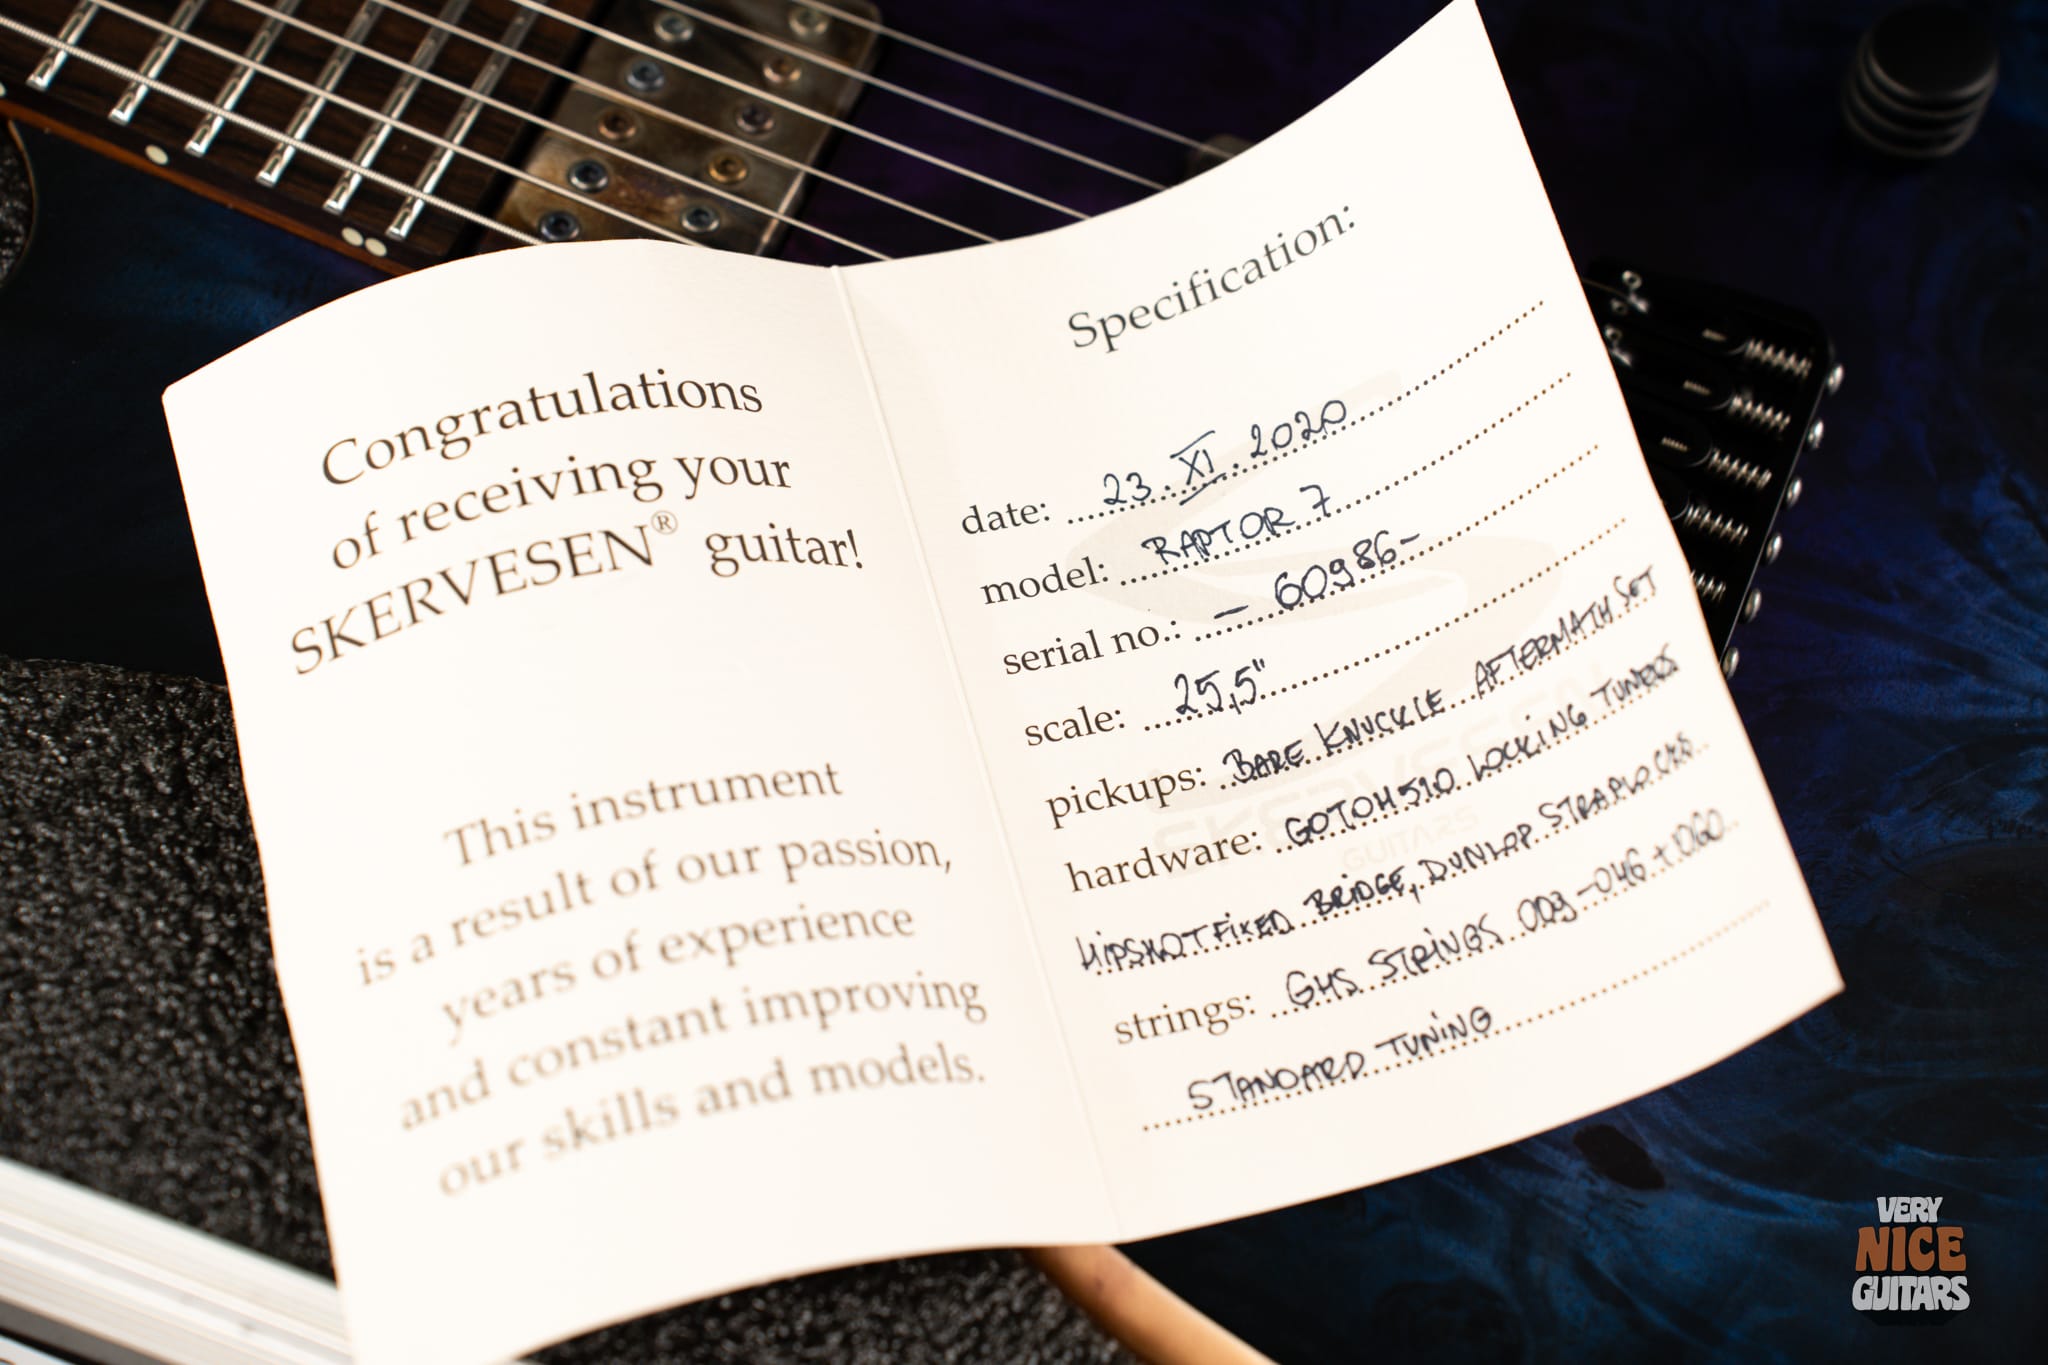 Congratulations
of receiving your
SKERVESEN® guitar!
This instrument
is a result of our passion,
years of experience
and constant improving
our skills and models.
Specification:
date: 23. XI. 2020
model: RAPTOR 7
serial no.: – 60986 –
scale: 25,5"
pickups: BARE KNUCKLE AFTERMATH SET
hardware: GOTOH 510 LOCKING TUNERS
HIPSHOT FIXED BRIDGE, DUNLOP STRAPLOCKS
strings: GHS STRINGS 009–046 + 060
STANDARD TUNING
SKERVESEN
GUITARS
VERY
NICE
GUITARS